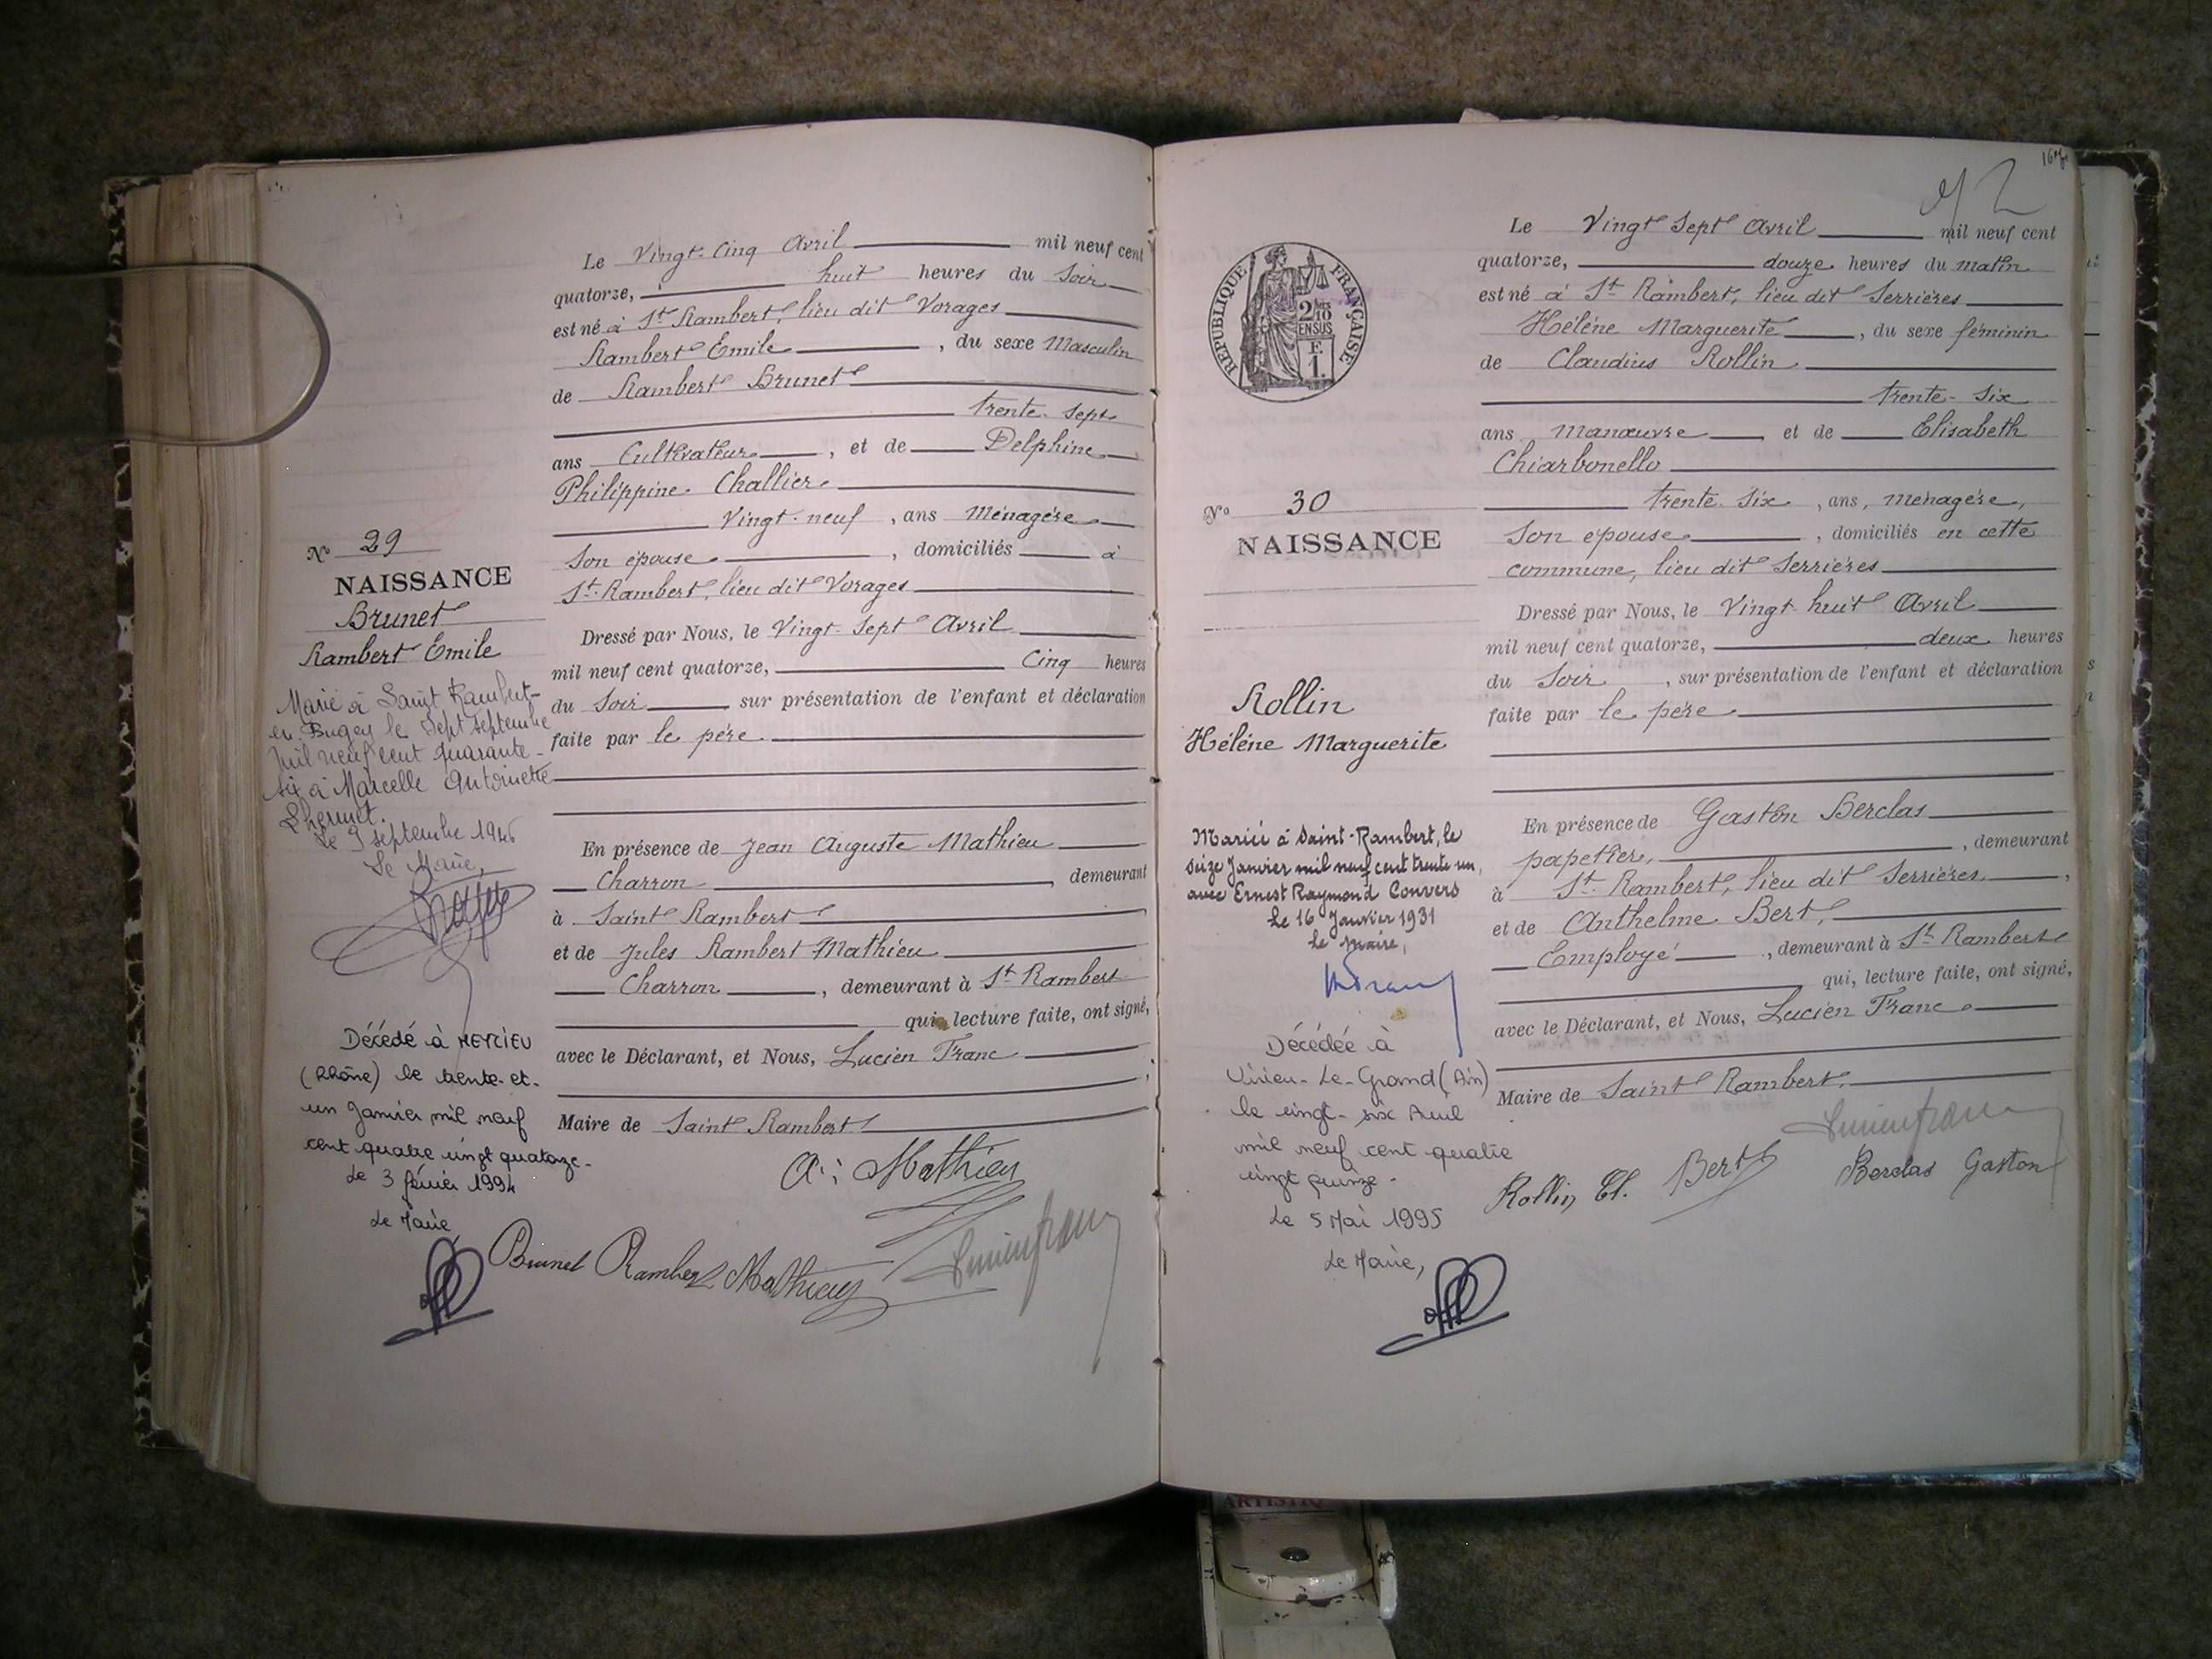 Le Vingt-Cinq Avril mil neuf cent
quatorze, huit heures du Soir
est né à St Rambert, lieu dit Vorages
Rambert Emile, du sexe Masculin
de Rambert Brunet
trente-sept
ans Cultivateur, et de Delphine
Philippine Challier
Vingt-neuf, ans Ménagère
Son épouse, domiciliés à
St-Rambert, lieu dit Vorages
Dressé par Nous, le Vingt-Sept Avril
mil neuf cent quatorze, Cinq heures
du Soir sur présentation de l'enfant et déclaration
faite par le père
En présence de Jean Auguste Mathieu
Charron, demeurant
à Saint Rambert
et de Jules Rambert Mathieu
Charron, demeurant à St Rambert
qui, lecture faite, ont signé,
avec le Déclarant, et Nous, Lucien Franc
Maire de Saint Rambert
A. Mathieu
Brunet Rambert Mathieu Lucien franc
No 29
NAISSANCE
Brunet
Rambert Emile
Marié à Saint Rambert-
en-Bugey le Sept septembre
mil neuf cent quarante-
six à Marcelle Antoinette
Lhermet.
Le 9 septembre 1946
Le Maire,
Décédé à MEYZIEU
(Rhône) le trente-et-
un Janvier mil neuf
cent quatre vingt quatorze-
Le 3 février 1994
Le Maire
16
REPUBLIQUE FRANÇAISE
2/10 EN SUS
F. 1.
Le Vingt Sept Avril mil neuf cent
quatorze, douze heures du matin
est né à St Rambert, lieu dit Serrières
Hélène Marguerite, du sexe féminin
de Claudius Rollin
trente-six
ans manœuvre et de Elisabeth
Chiarbonello
trente six, ans, ménagère,
Son épouse, domiciliés en cette
commune, lieu dit Serrières
Dressé par Nous, le Vingt-huit Avril
mil neuf cent quatorze, deux heures
du Soir, sur présentation de l'enfant et déclaration
faite par le père
En présence de Gaston Berclas
papetier, demeurant
à St. Rambert, lieu dit Serrières,
et de Anthelme Bert,
Employé, demeurant à St Rambert
qui, lecture faite, ont signé,
avec le Déclarant, et Nous, Lucien Franc
Maire de Saint Rambert.
Lucien franc
Rollin Cl. Bert Berclas Gaston
No 30
NAISSANCE
Rollin
Hélène Marguerite
Mariée à Saint-Rambert, le
seize Janvier mil neuf cent trente un,
avec Ernest Raymond Convers
Le 16 Janvier 1931
Le Maire,
Décédée à
Virieu-Le-Grand (Ain)
le vingt-six Avril
mil neuf cent quatre
vingt quinze-
Le 5 Mai 1995
Le Maire,
ARTISTIQ